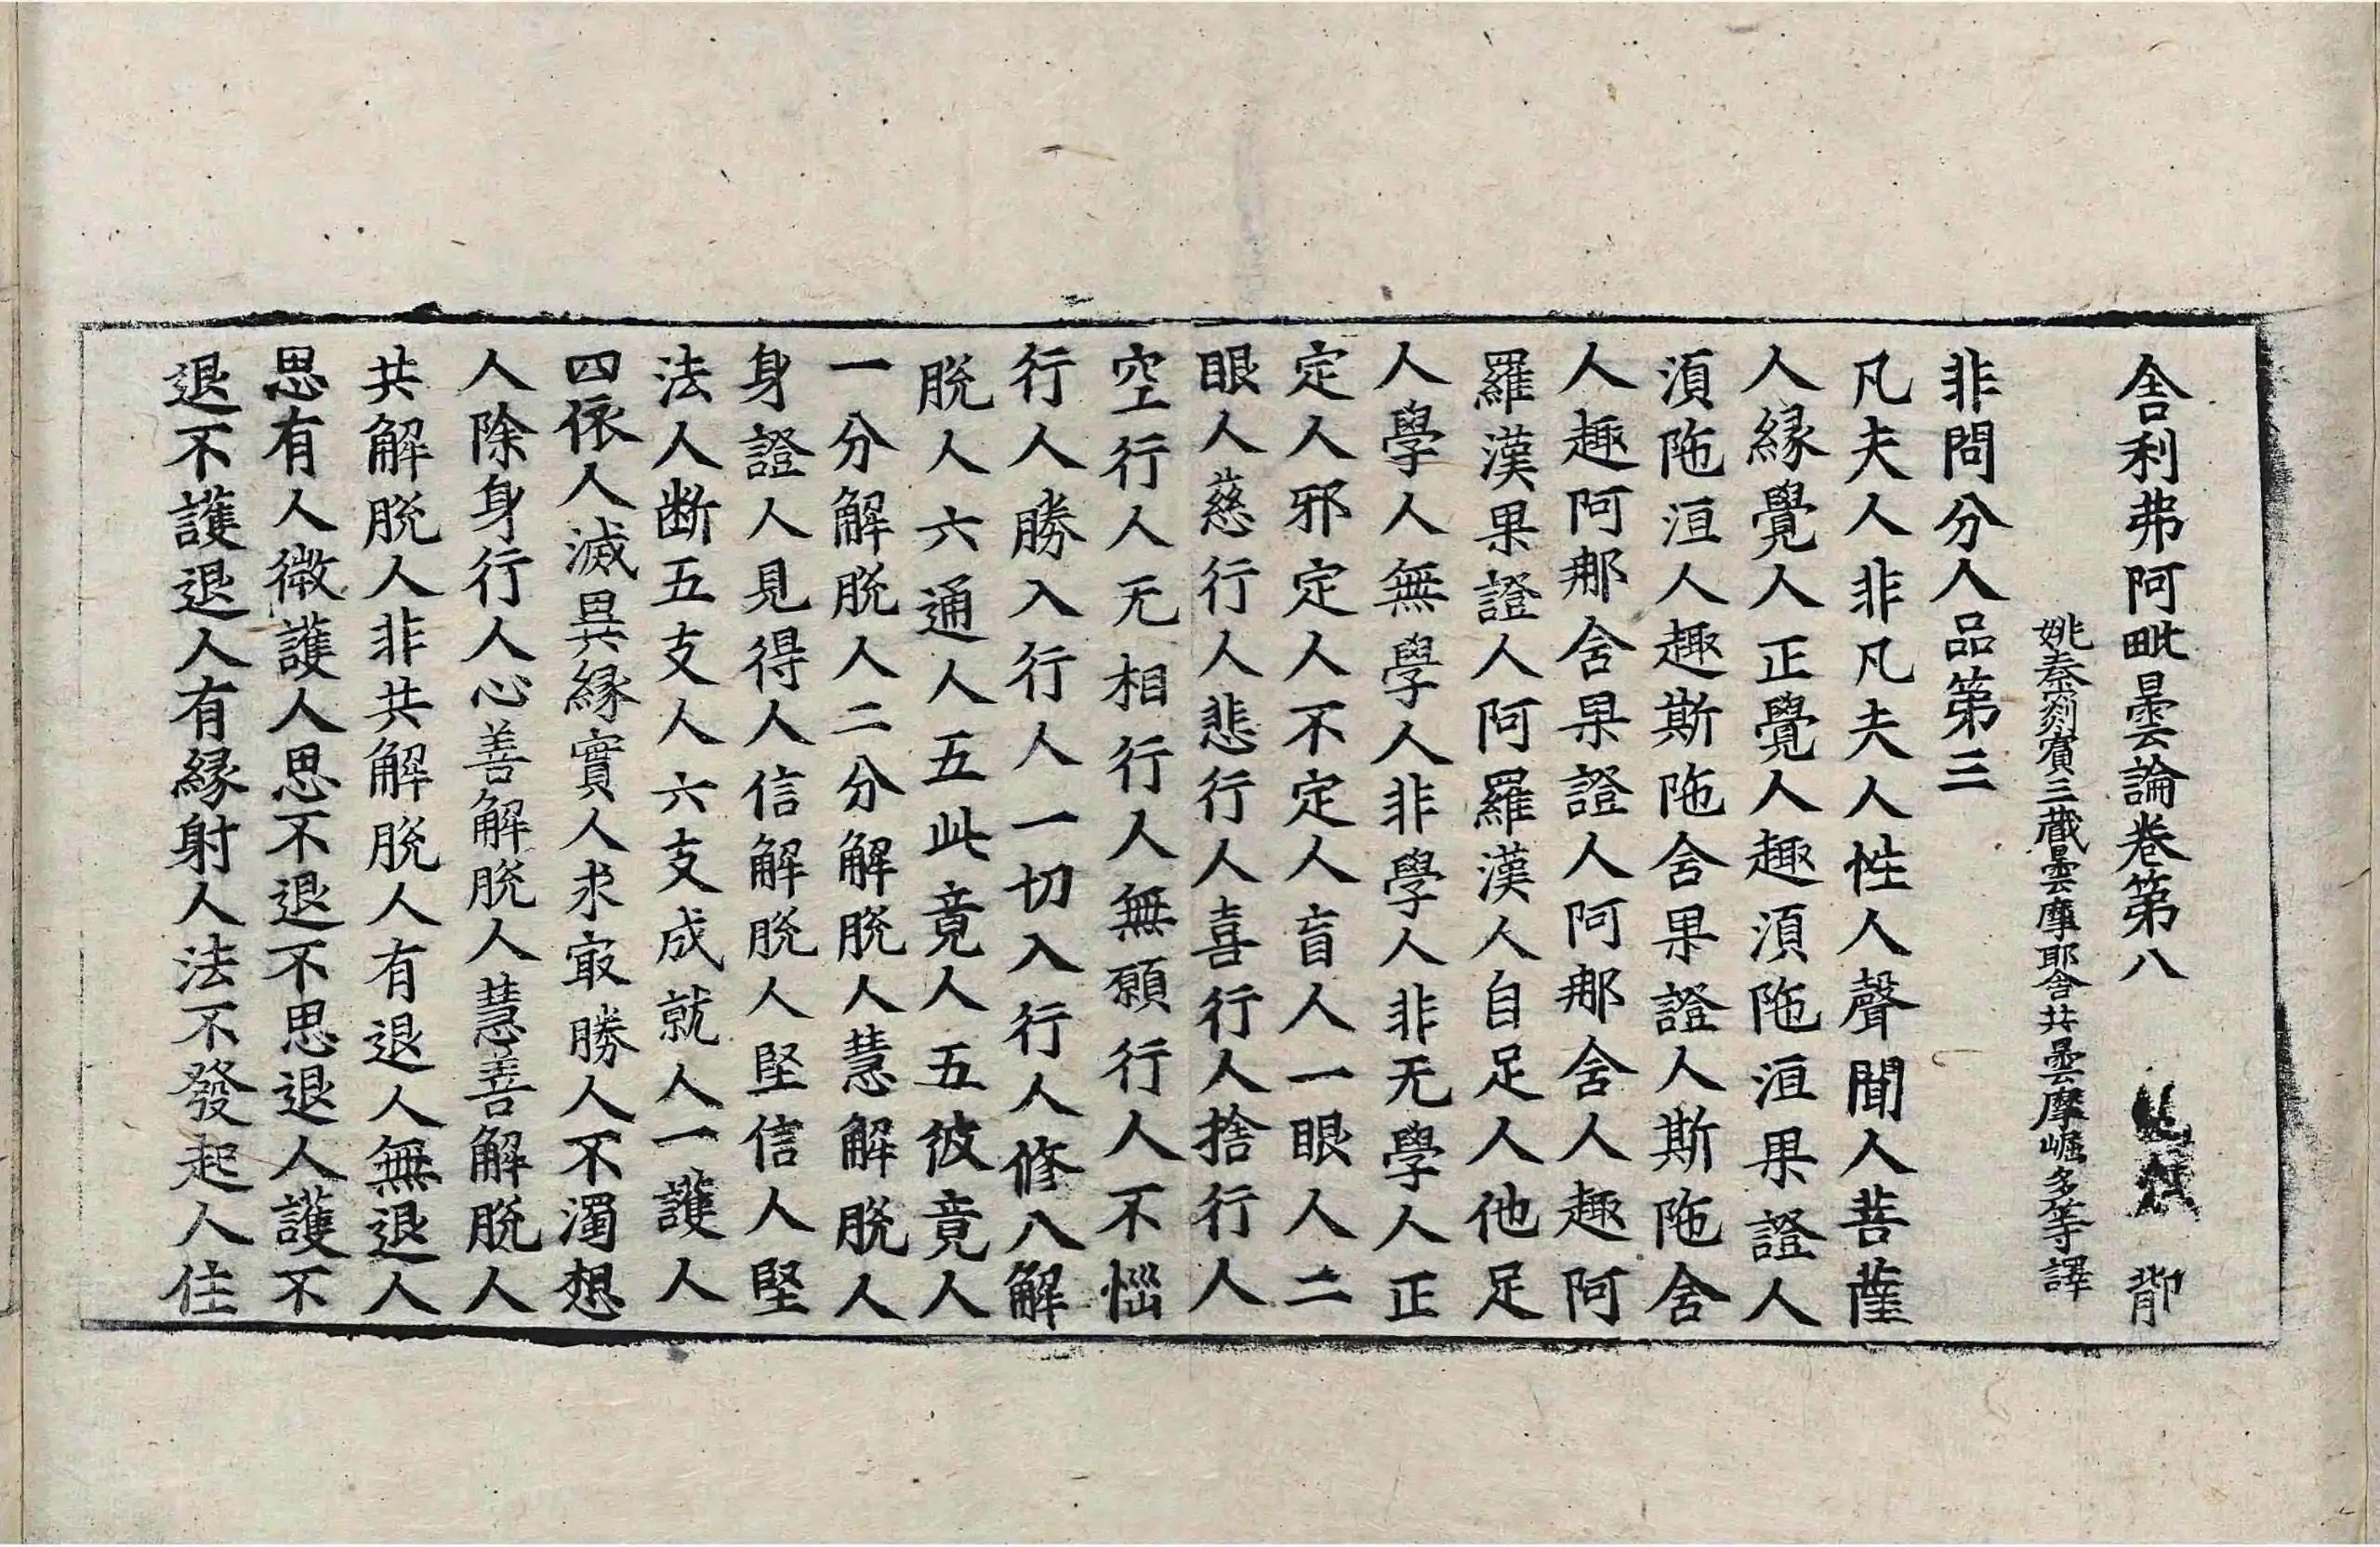 舍利弗阿毗曇論卷第八
姚秦罽賓三藏曇摩耶舍共曇摩崛多等譯
非問分人品第三
凡夫人非凡夫人性人聲聞人菩薩
人緣覺人正覺人趣湏陁洹果證人
湏陁洹人趣斯陁舍果證人斯陁舍
人趣阿那舍果證人阿那舍人趣阿
羅漢果證人阿羅漢人自足人他足
人學人無學人非學人非无學人正
定人邪定人不定人盲人一眼人二
眼人慈行人悲行人喜行人捨行人
空行人无相行人無願行人不惱
行人勝入行人一切入行人修八解
脫人六通人五此竟人五彼竟人
一分解脫人二分解脫人慧解脫人
身證人見得人信解脫人堅信人堅
法人断五支人六支成就人一護人
四依人滅異緣實人求㝡勝人不濁想
人除身行人心善解脫人慧善解脫人
共解脫人非共解脫人有退人無退人
思有人微護人思不退不思退人護不
退不護退人有緣射人法不發起人住